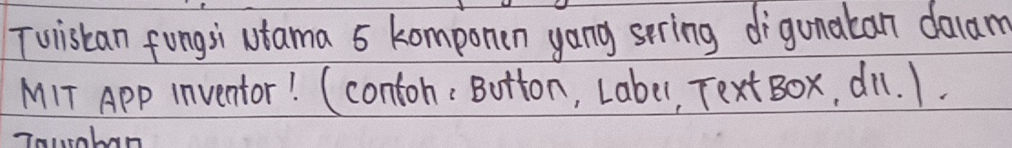 Tuiiskan fungsi utama 5 komponen yang sering digunakan dalam
MIT APP Inventor! (contoh: Button, Label, TextBox, dll.).
Jawaban